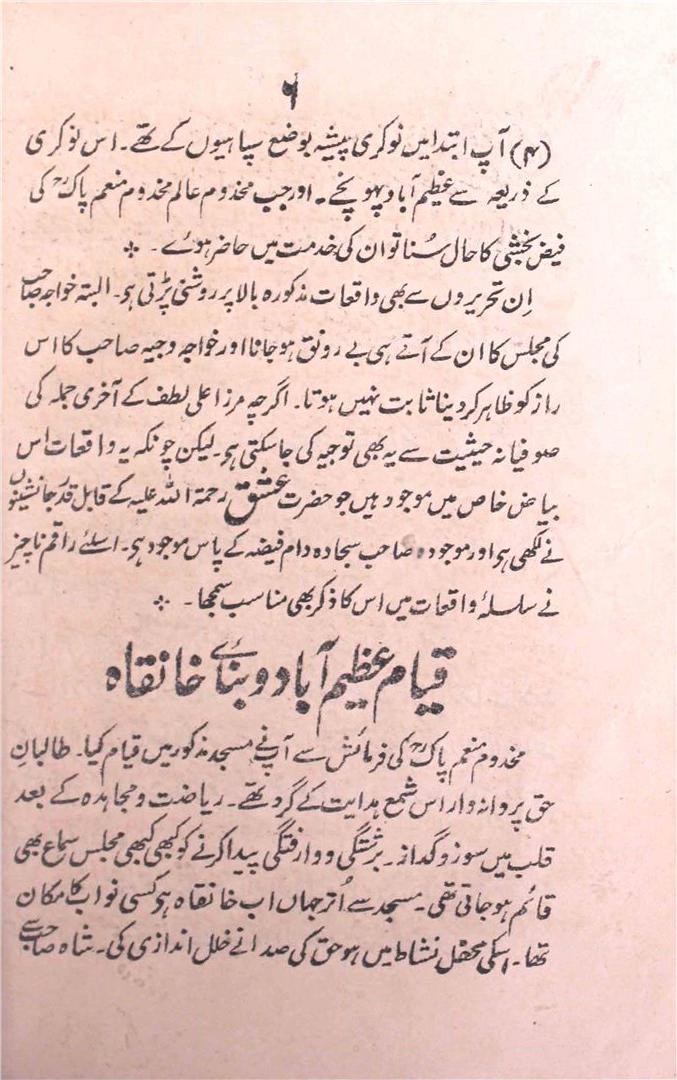 ۶
(۴) آپ ابتدا میں نوکری پیشہ بوضع سپاہیوں کے تھے۔ اس نوکری
کے ذریعہ سے عظیم آباد پہونچے۔ اور جب مخدوم عالم مخدوم منعم پاکؒ کی
فیض بخشی کا حال سُنا تو ان کی خدمت میں حاضر ہوئے۔ ⁘
اِن تحریروں سے بھی واقعات مذکورہ بالا پر روشنی پڑتی ہو۔ البتہ خواجہ صاحب
کی مجلس کا ان کے آتے ہی بے رونق ہو جانا اور خواجہ وجیہ صاحب کا اس
راز کو ظاہر کر دینا ثابت نہیں ہوتا۔ اگرچہ مرزا علی لطف کے آخری جملہ کی
صوفیانہ حیثیت سے یہ بھی توجیہ کی جا سکتی ہو۔ لیکن چونکہ یہ واقعات اس
بیاض خاص میں موجود ہیں جو حضرت عشق رحمۃ اللہ علیہ کے قابل قدر جانشینوں
نے لکھی ہو اور موجودہ صاحب سجادہ دام فیضہ کے پاس موجود ہو۔ اسلئے راقم ناچیز
نے سلسلۂ واقعات میں اس کا ذکر بھی مناسب سمجھا۔ ⁘
قیام عظیم آباد و بنائے خانقاہ
مخدوم منعم پاکؒ کی فرمائش سے آپ نے مسجد مذکور میں قیام کیا۔ طالبانِ
حق پروانہ وار اس شمع ہدایت کے گرد تھے۔ ریاضت و مجاہدہ کے بعد
قلب میں سوز و گداز۔ برشتگی و وارفتگی پیدا کرنے کو کبھی کبھی مجلس سماع بھی
قائم ہو جاتی تھی۔ مسجد سے اُتر جہاں اب خانقاہ ہو کسی نواب کا مکان
تھا۔ اسکی محفل نشاط میں ہو حق کی صدا نے خلل اندازی کی۔ شاہ صاحب سے